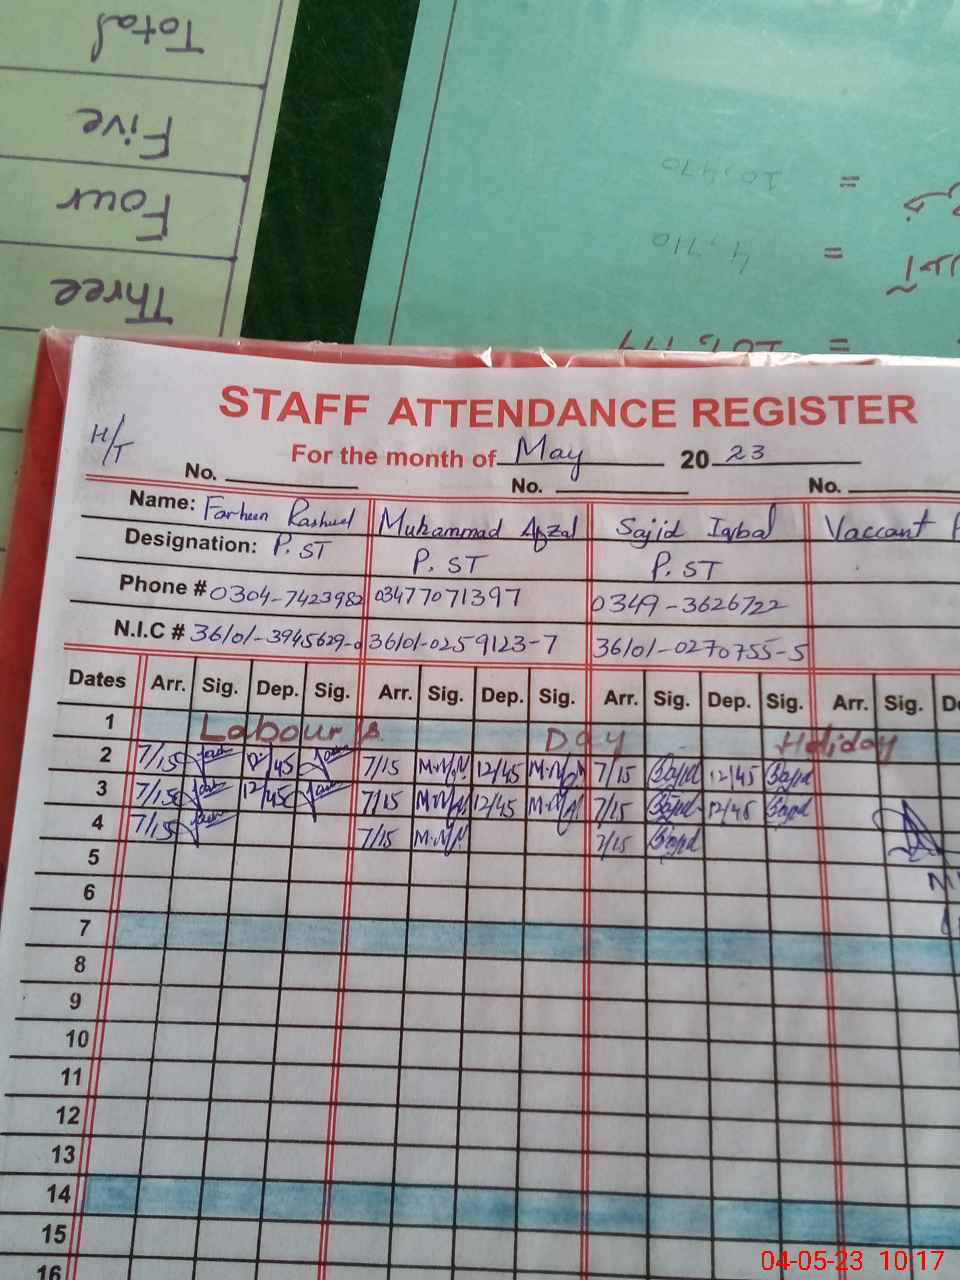 Total
Five
Four
Three
= 10,470
= 4,710
=
STAFF ATTENDANCE REGISTER
H/T
For the month of May 2023
No. No. No.
Name: Farheen Rasheed Muhammad Afzal Sajid Iqbal Vaccant
Designation: P.ST P.ST P.ST
Phone # 0304-7423982 03477071397 0349-3626722
N.I.C # 36101-3945629-0 36101-0259123-7 36101-0270755-5
Dates Arr. Sig. Dep. Sig. Arr. Sig. Dep. Sig. Arr. Sig. Dep. Sig. Arr. Sig.
1 Labour's Day Holiday
2 7/15 12/45 7/15 12/45 7/15 12/45
3 7/15 12/45 7/15 12/45 7/15 12/45
4 7/15 7/15 7/15
5
6
7
8
9
10
11
12
13
14
15
16
04-05-23 10:17